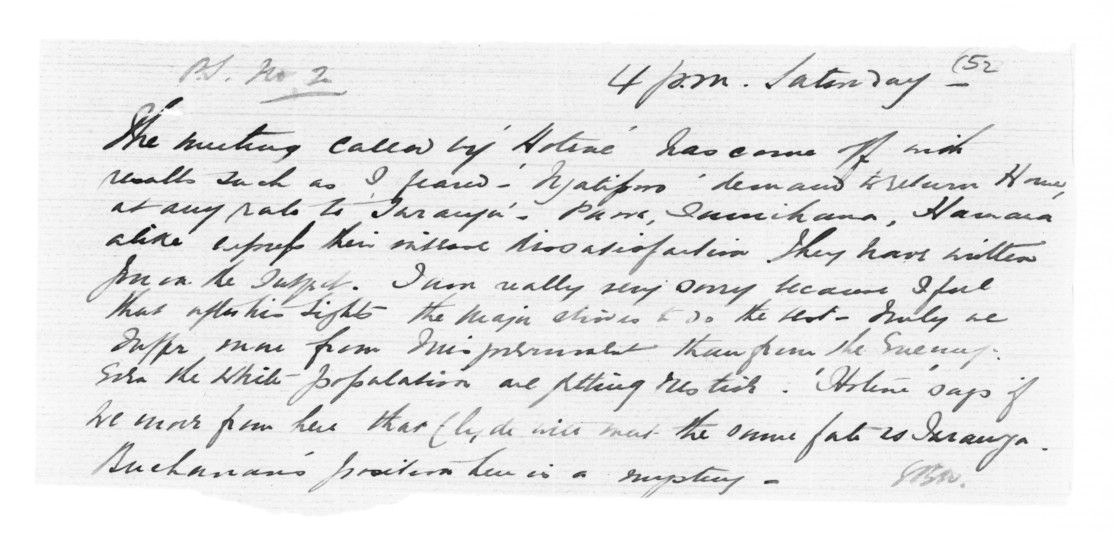 P.S. No 2
4 p.m. Saturday (52
The meeting called by 'Hotene' has come off with
results such as I feared - 'Ngatiporo' demand to return Home,
at any rate to 'Turanga' - Hamara
alike express their intense dissatisfaction They have written
you on the subject. I am really very sorry because I feel
that after his lights the Major strives to do the best - Truly we
suffer more from than from the Enemy.
Even the White population are getting restive. 'Hotene' says if
we move from here that Clyde will meet the same fate as Turanga.
Buchanan's position here is a mystery -